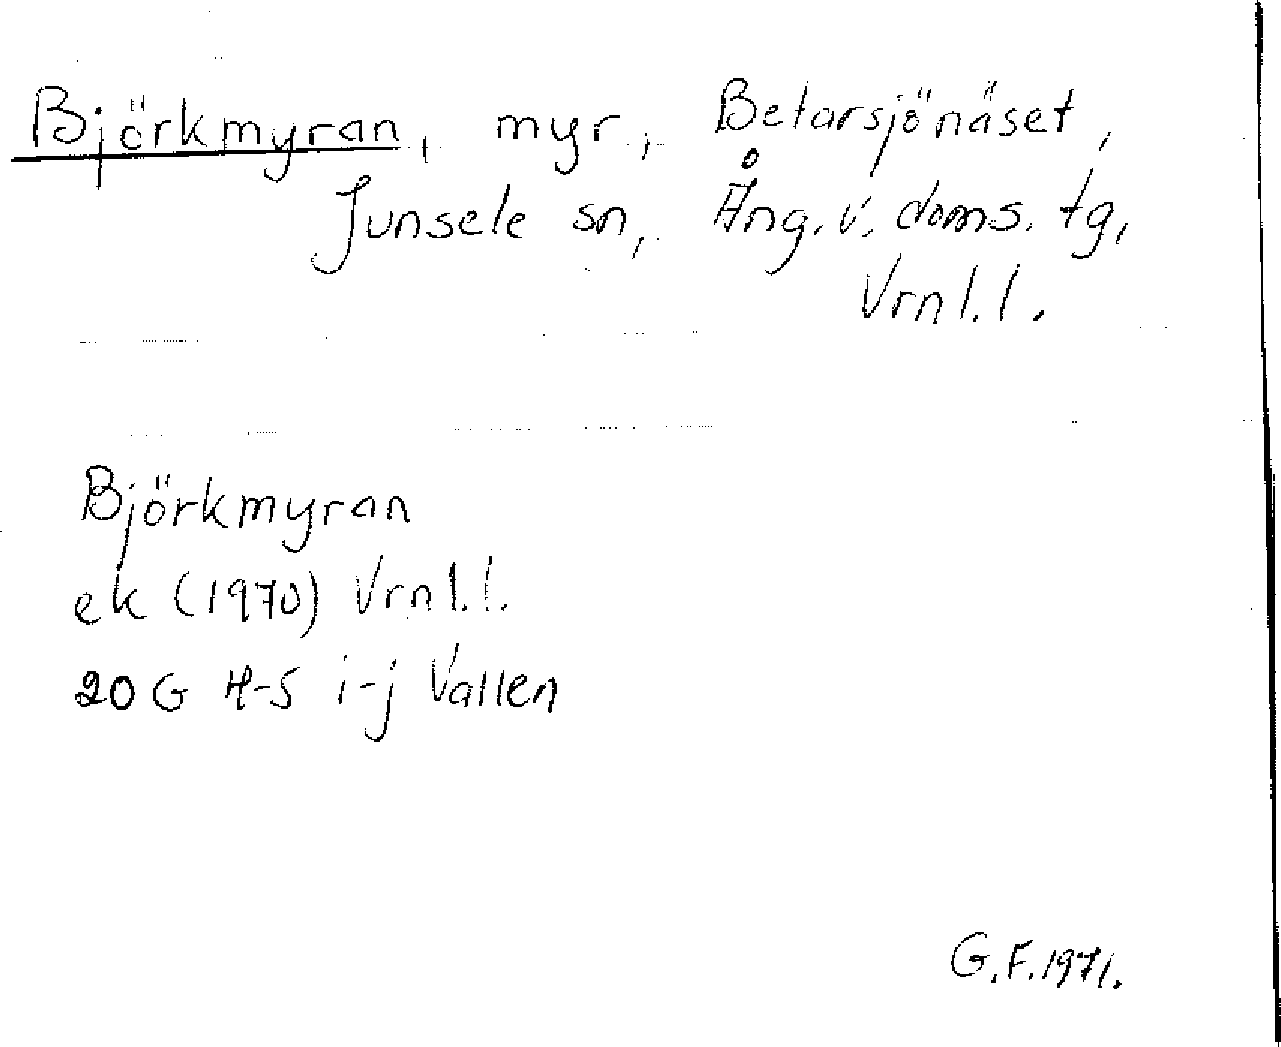 Björkmyran, myr, Betarsjönäset,
Junsele sn, Ång. v. doms. tg,
Vrnl. l.
Björkmyran
ek (1970) Vrnl. l.
20 G H-S i-j Vallen
G.F. 1971.